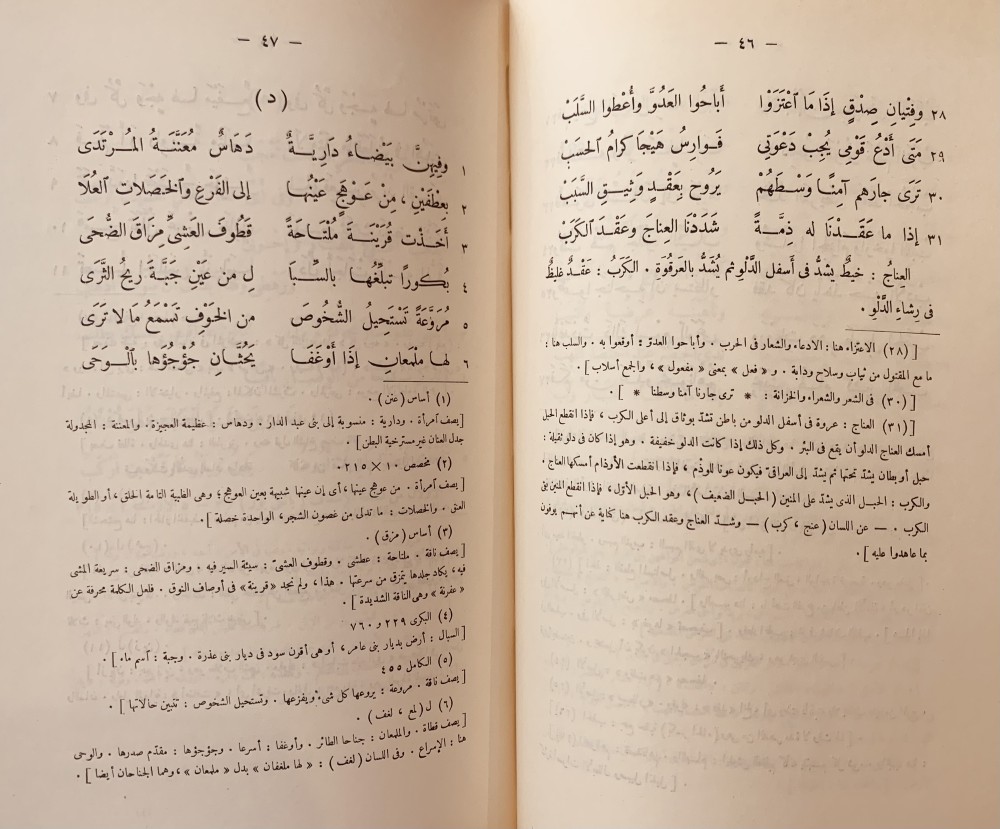 — ٤٦ —
٢٨ وفِتْيانِ صِدْقٍ إذَا مَا اعْتَزَوْا أَباحُوا العَدُوَّ وأُعْطُوا السَّلَبْ
٢٩ مَتَى أَدْعُ قَوْمِى يُجِبْ دَعْوَتِى فَوارِسُ هَيْجَا كِرامُ الحَسَبْ
٣٠ تَرَى جارَهم آمِنًا وَسْطَهُمْ يَرُوح بِعَقْدٍ وَثِيقِ السَّبَبْ
٣١ إذا ما عَقَدْنَا له ذِمَّةً شَدَدْنَا العِناجَ وعَقْدَ الكَرَبْ
العِناجُ : خيطٌ يشدُّ فى أسفل الدَّلْوِ ثم يُشَدُّ بالعرقُوَة . الكَرَبُ : عَقْدٌ غليظٌ
فى رِشاءِ الدَّلْوِ .
[ (٢٨) الاعتزاء هنا : الادعاء والشعار فى الحرب . وأباحوا العدوّ : أوقعوا به . والسلب هنا :
ما مع المقتول من ثياب وسلاح ودابة . و « فعل » بمعنى « مفعول » ، والجمع أسلاب ] .
[ (٣٠) فى الشعر والشعراء والخزانة : * ترى جارنا آمنا وسطنا * ] .
[ (٣١) العناج : عروة فى أسفل الدلو من باطن تشدّ بوثاق إلى أعلى الكرب ، فإذا انقطع الحبل
أمسك العناج الدلو أن يقع فى البئر . وكل ذلك إذا كانت الدلو خفيفة . وهو إذا كان فى دلو ثقيلة :
حبل أو بطان يشدّ تحتها ثم يشدّ إلى العراقى فيكون عونا للوذم ، فإذا انقطعت الأوذام أمسكها العناج .
والكرب : الحبــل الذى يشدّ على المنين (الحبــل الضعيف) ، وهو الحبل الأوّل ، فإذا انقطع المنين بقى
الكرب . — عن اللسان (عنج ، كرب) — وشدّ العناج وعقد الكرب هنا كناية عن أنهم يوفون
بما عاهدوا عليه ] .
— ٤٧ —
(د)
١ وفِيهِنَّ بَيْضاءُ دَارِيَّةٌ دَهَاسٌ مُعَنَّنَةُ المُرْتَدَى
٢ بِعِطْفَيْنِ ، مِنْ عَوْهَجٍ عَيْنُها إلى الفَرْعِ والخَصَلاتِ العُلَا
٣ أَخَذْت قُرَيْنَةَ مُلْتَاحَةً قَطُوفَ العَشِىِّ مِزَاقَ الضُّحَى
٤ بُكورًا تبلِّغُها بالسِّبَا لِ من عَيْنِ جَبَّةَ رِيحُ الثَّرَى
٥ مُرَوَّعَةً تَسْتَحِيلُ الشُّخُوصَ من الخَوْفِ تَسْمَعُ مَا لا تَرَى
٦ لها مِلْمَعانِ إذَا أَوْغَفَا يَحُثَّانِ جُؤْجُؤَها بالْوَحَى
(١) أساس (عنن) .
[يصف امرأة . ودارية : منسوبة إلى بنى عبد الدار . ودهاس : عظيمة العجيزة . والمعننة : المجدولة
جدل العنان غير مسترخية البطن] .
(٢) مخصص ١٠ × ٢١٥ .
[يصف امرأة . من عوهج عينها ، أى إن عينها شبيهة بعين العوهج ؛ وهى الظبية التامة الخلق ، أو الطويلة
العنق . والخصلات : ما تدلى من غصون الشجر ، الواحدة خصلة ] .
(٣) أساس (مزق) .
[يصف ناقة . ملتاحة : عطشى . وقطوف العشىّ : سيئة السير فيه . ومزاق الضحى : سريعة المشى
فيه ، يكاد جلدها يتمزق من سرعتها . هذا ، ولم نجد « قرينة » فى أوصاف النوق . فلعل الكلمة محرفة عن
« عفرنة » وهى الناقة الشديدة ] .
(٤) البكرى ٢٢٩ و ٧٦٠
[السبال : أرض بديار بنى عامر ، أو هى أقرن سود فى ديار بنى عذرة . وجبة : اسم ماء ] .
(٥) الكامل ٤٥٥
[يصف ناقة . مروعة : يروعها كل شىء ويفزعها . وتستحيل الشخوص : تتبين حالاتها ] .
(٦) ل (لمع ، لغف) .
[يصف قطاة . والملمعان : جناحا الطائر . وأوغفا : أسرعا . وجؤجؤها : مقدّم صدرها . والوحى
هنا : الإسراع . وفى اللسان (لغف) : « لها ملغفان » بدل « ملمعان » ، وهما الجناحان أيضا ] .